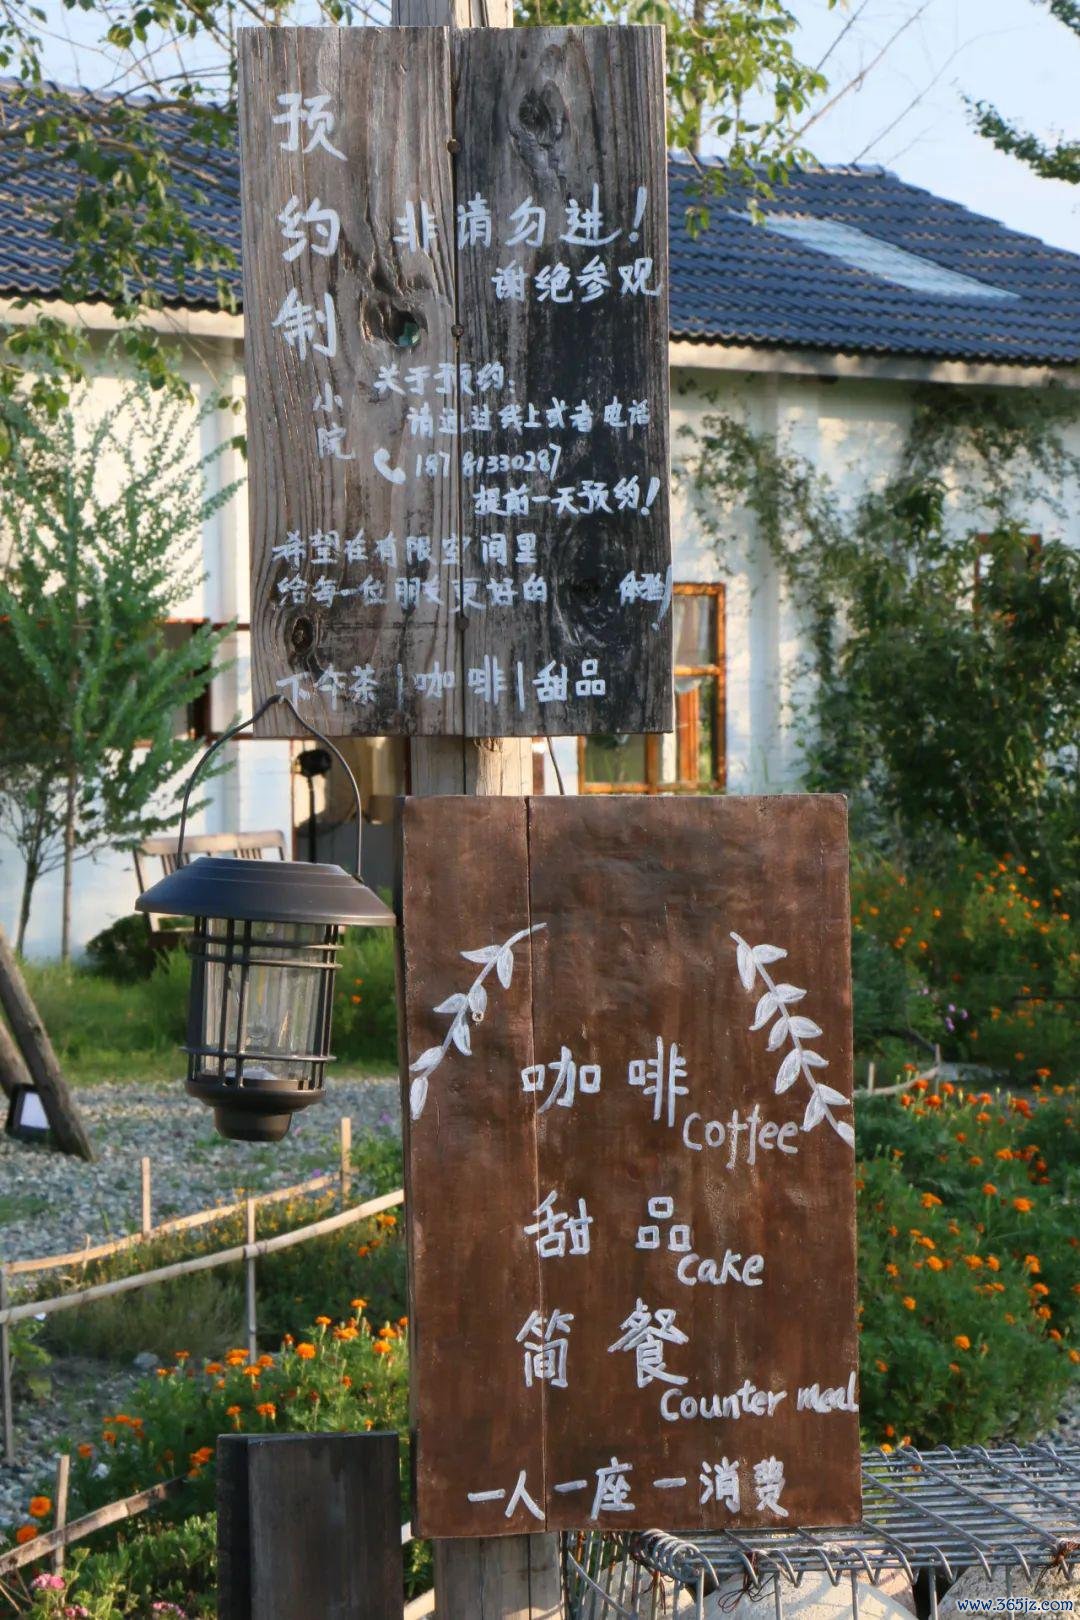 预约制
小院
非请勿进！
谢绝参观
关于预约：
请通过线上或者电话
18781330287
提前一天预约！
希望在有限空间里
给每一位朋友更好的 体验！
下午茶|咖啡|甜品
咖啡
Coffee
甜品
Cake
简餐
Counter meal
一人一座一消费
www.365jz.com